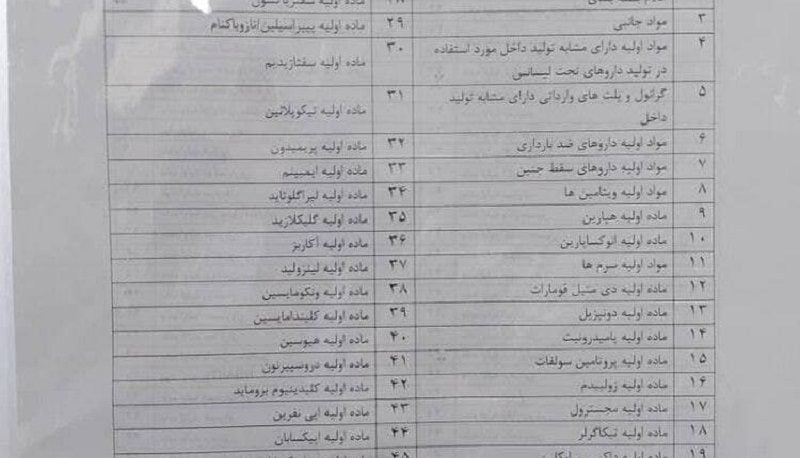 ۳ مواد جانبی ۲۹ ماده اولیه پیپراسیلین/تازوباکتام
۴ مواد اولیه دارای مشابه تولید داخل مورد استفاده ۳۰ ماده اولیه سفتازیدیم
در تولید داروهای تحت لیسانس
۵ گرانول و پلت های وارداتی دارای مشابه تولید ۳۱ ماده اولیه تیکوپلانین
داخل
۶ مواد اولیه داروهای ضد بارداری ۳۲ ماده اولیه پریمیدون
۷ مواد اولیه داروهای سقط جنین ۳۳ ماده اولیه ایمیپنم
۸ مواد اولیه ویتامین ها ۳۴ ماده اولیه لیراگلوتاید
۹ ماده اولیه هپارین ۳۵ ماده اولیه گلیکلازید
۱۰ ماده اولیه انوکساپارین ۳۶ ماده اولیه آکاربز
۱۱ مواد اولیه سرم ها ۳۷ ماده اولیه لینزولید
۱۲ ماده اولیه دی متیل فومارات ۳۸ ماده اولیه ونکومایسین
۱۳ ماده اولیه دونپزیل ۳۹ ماده اولیه کلیندامایسین
۱۴ ماده اولیه پامیدرونیت ۴۰ ماده اولیه هیوسین
۱۵ ماده اولیه پروتامین سولفات ۴۱ ماده اولیه دروسپیرنون
۱۶ ماده اولیه زولپیدم ۴۲ ماده اولیه کلیدینیوم بروماید
۱۷ ماده اولیه مجسترول ۴۳ ماده اولیه اپی نفرین
۱۸ ماده اولیه تیکاگرلر ۴۴ ماده اولیه اپیکسابان
۱۹ ماده اولیه ۴۵ ماده اولیه